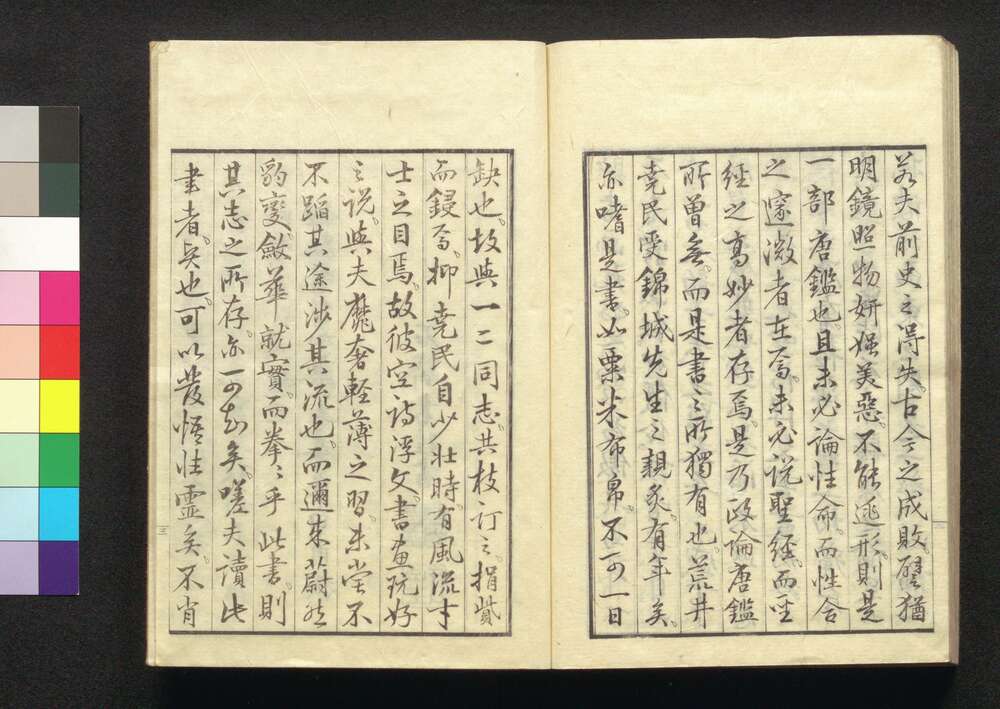 若夫前史之得失。古今之成敗。譬猶
明鏡照物妍媸美惡。不能逃形。則是
一部唐鑑也。且未必論性命。而性命
之邃微者在焉。未必説聖經。而聖
經之高妙者存焉。是乃政論唐鑑
所曾無。而是書之所獨有也。荒井
堯民受錦城先生之親炙有年矣。
亦嗜是書。如粟米布帛。不可一日
缺也。故與一二同志。共校訂之。捐貲
而鋟焉。抑堯民自少壯時。有風流才
士之目焉。故彼空詩浮文。書畫玩好
之説。與夫靡奢輕薄之習。未嘗不
不蹈其途涉其流也。而邇來蔚然
豹變斂華就實。而拳々乎此書。則
其志之所存。亦可知矣。嗟夫讀此
書者。吳也。可以發悟性靈矣。不肖